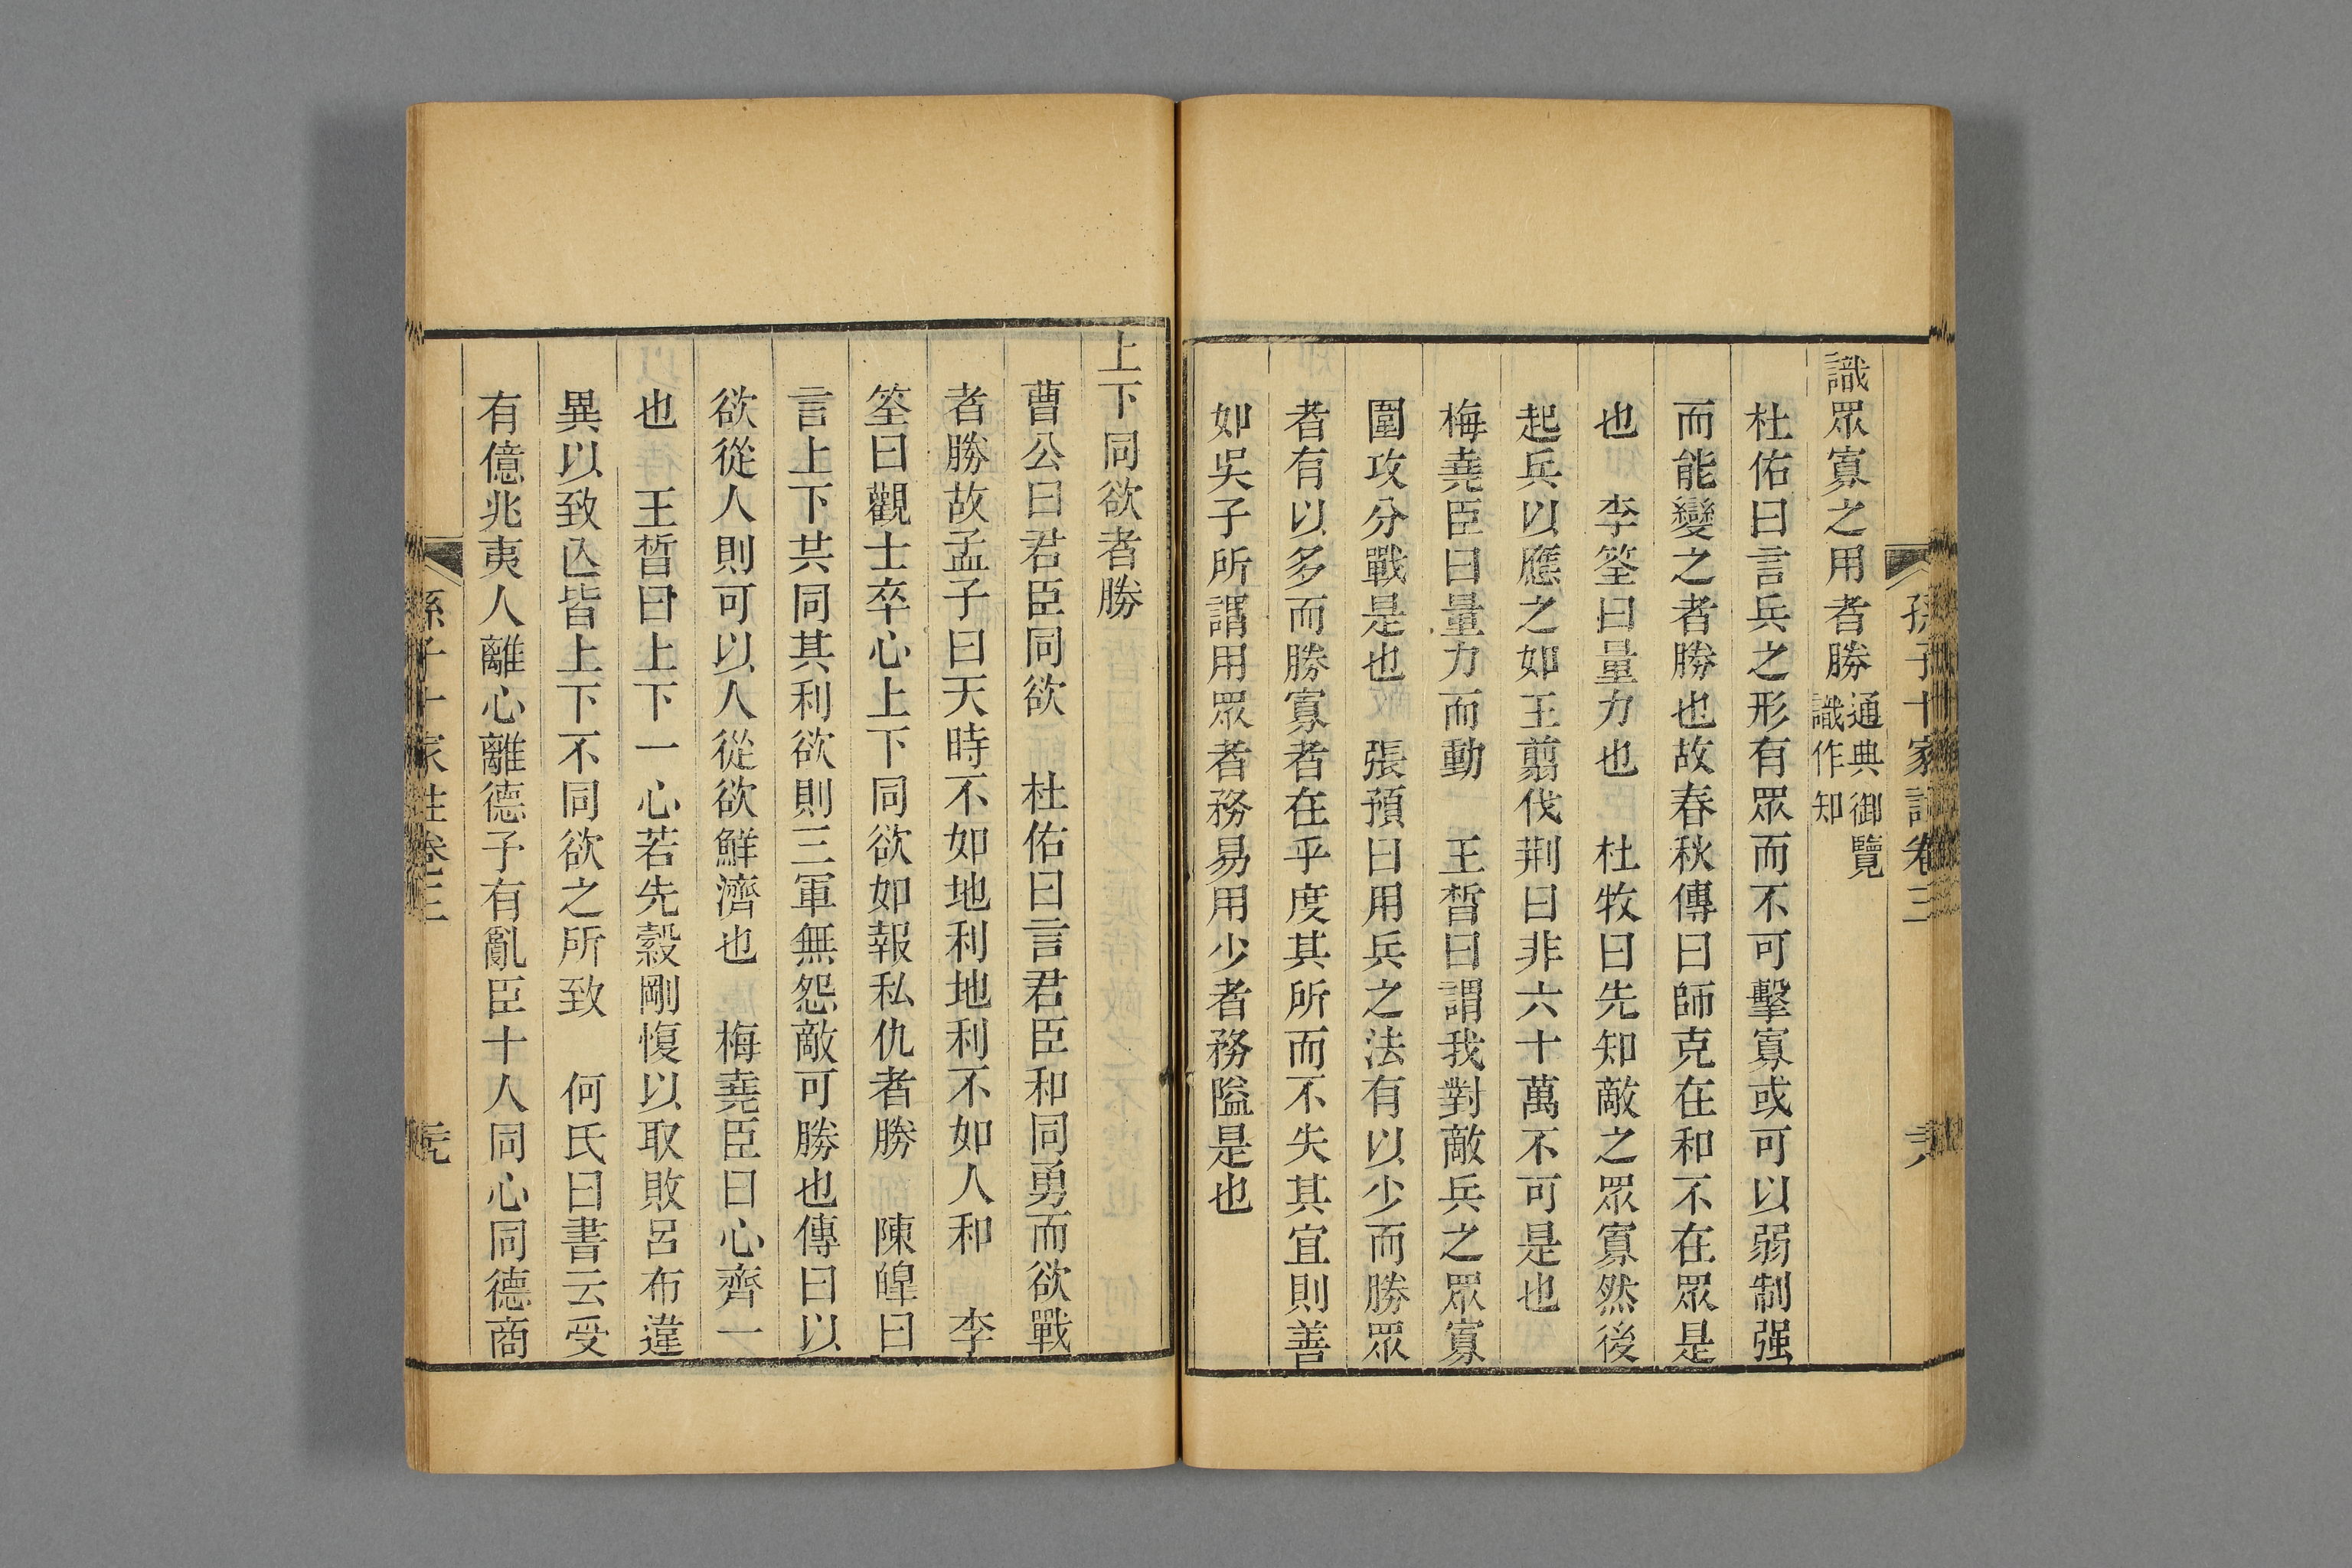 孫子十家註卷三
識眾寡之用者勝通典御覽
識作知
杜佑曰言兵之形有眾而不可擊寡或可以弱制强
而能變之者勝也故春秋傳曰師克在和不在眾是
也　李筌曰量力也　杜牧曰先知敵之眾寡然後
起兵以應之如王翦伐荆曰非六十萬不可是也
梅堯臣曰量力而動　王晳曰謂我對敵兵之眾寡
圍攻分戰是也　張預曰用兵之法有以少而勝眾
者有以多而勝寡者在乎度其所而不失其宜則善
如吳子所謂用眾者務易用少者務隘是也
上下同欲者勝
曹公曰君臣同欲　杜佑曰言君臣和同勇而欲戰
者勝故孟子曰天時不如地利地利不如人和　李
筌曰觀士卒心上下同欲如報私仇者勝　陳皥曰
言上下共同其利欲則三軍無怨敵可勝也傳曰以
欲從人則可以人從欲鮮濟也　梅堯臣曰心齊一
也　王晳曰上下一心若先縠剛愎以取敗呂布違
異以致亾皆上下不同欲之所致　何氏曰書云受
有億兆夷人離心離德予有亂臣十人同心同德商
孫子十家註卷三